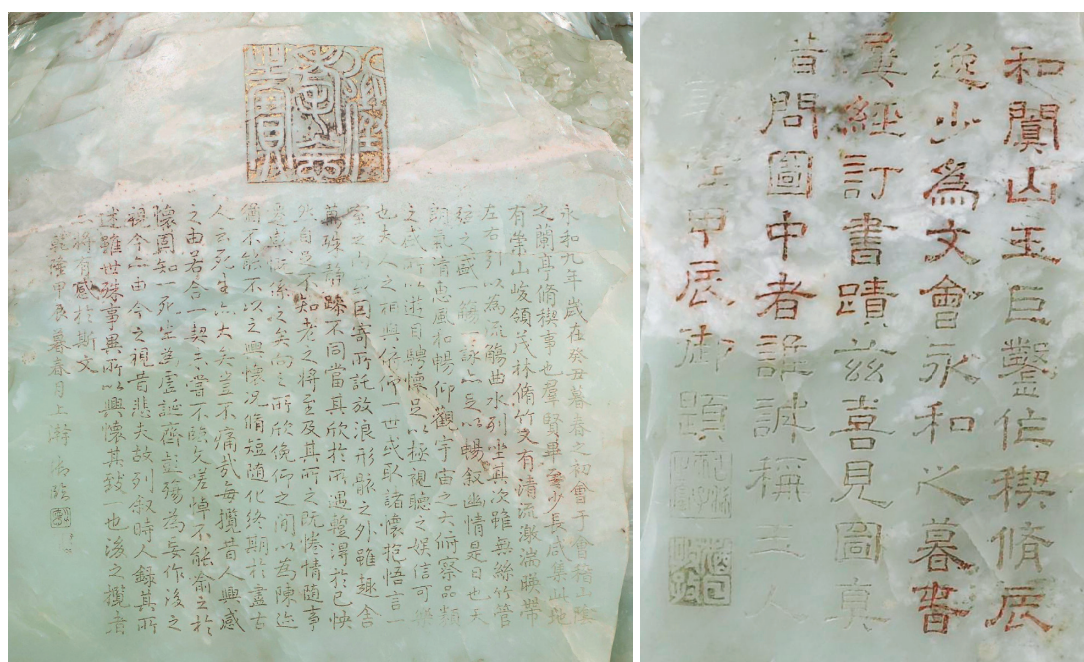 八徵耄念之寶
永和九年歲在癸丑暮春之初會于會稽山陰
之蘭亭脩稧事也羣賢畢至少長咸集此地
有崇山峻領茂林脩竹又有清流激湍暎帶
左右引以為流觴曲水列坐其次雖無絲竹管
弦之盛一觴一詠亦足以暢叙幽情是日也天
朗氣清惠風和暢仰觀宇宙之大俯察品類
之盛所以遊目騁懷足以極視聽之娛信可樂
也夫人之相與俯仰一世或取諸懷抱悟言一
室之內或因寄所託放浪形骸之外雖趣舍
萬殊靜躁不同當其欣於所遇蹔得於己怏
然自足不知老之將至及其所之既惓情隨事
遷感慨係之矣向之所欣俛仰之閒以為陳迹
猶不能不以之興懷況脩短隨化終期於盡古
人云死生亦大矣豈不痛哉每攬昔人興感
之由若合一契未嘗不臨文嗟悼不能喻之於
懷固知一死生為虛誕齊彭殤為妄作後之
視今亦由今之視昔悲夫故列叙時人錄其所
述雖世殊事異所以興懷其致一也後之攬者
亦將有感於斯文
乾隆甲辰暮春月上澣御臨
和闐山玉巨鑿作稧脩辰
逸少為文會永和之暮春
屢經訂書蹟茲喜見圖真
借問圖中者誰誠稱主人
乾隆甲辰御題